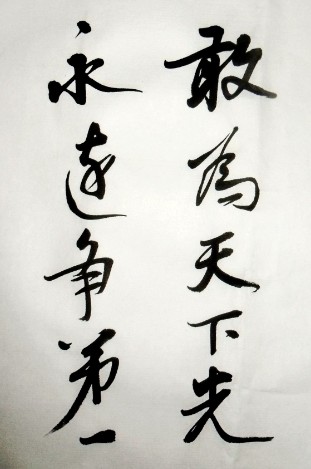 敢為天下先
永遠争第一